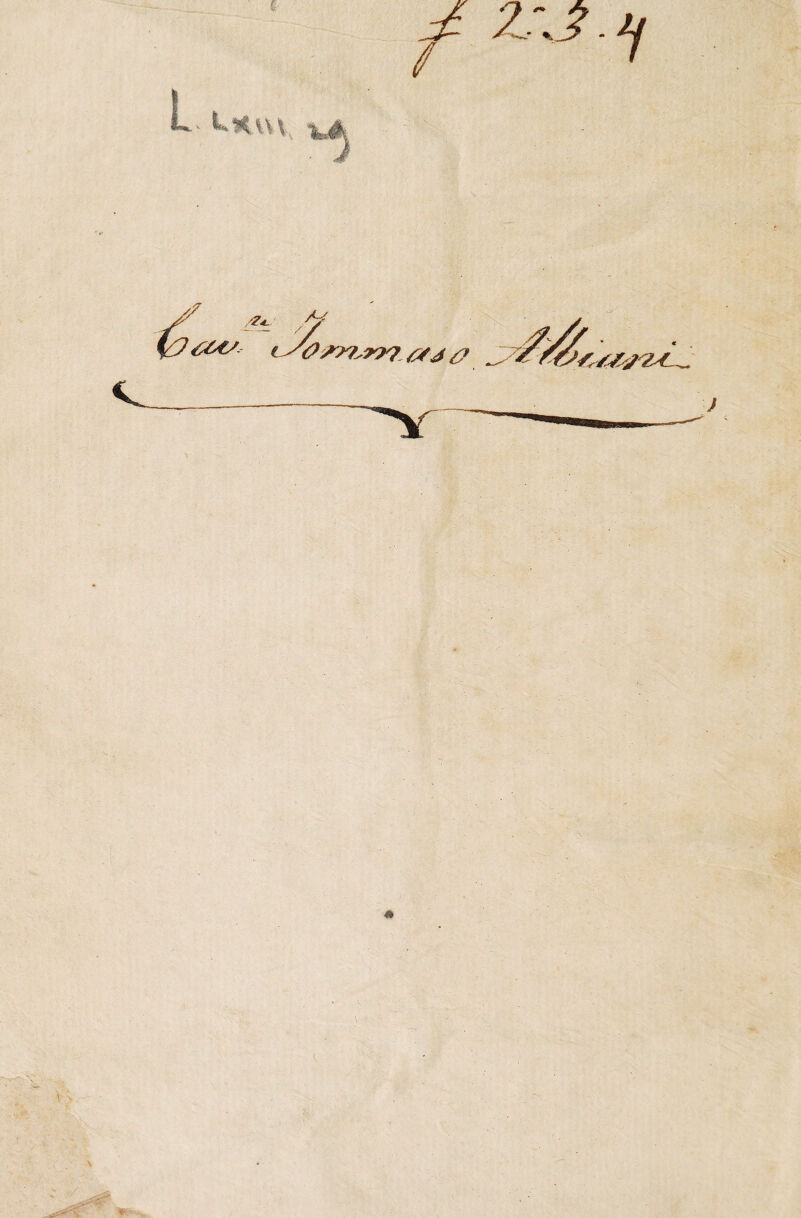 £ 2.-3.4
L. LXIII. 29
Cav.re Tommaso Albiani